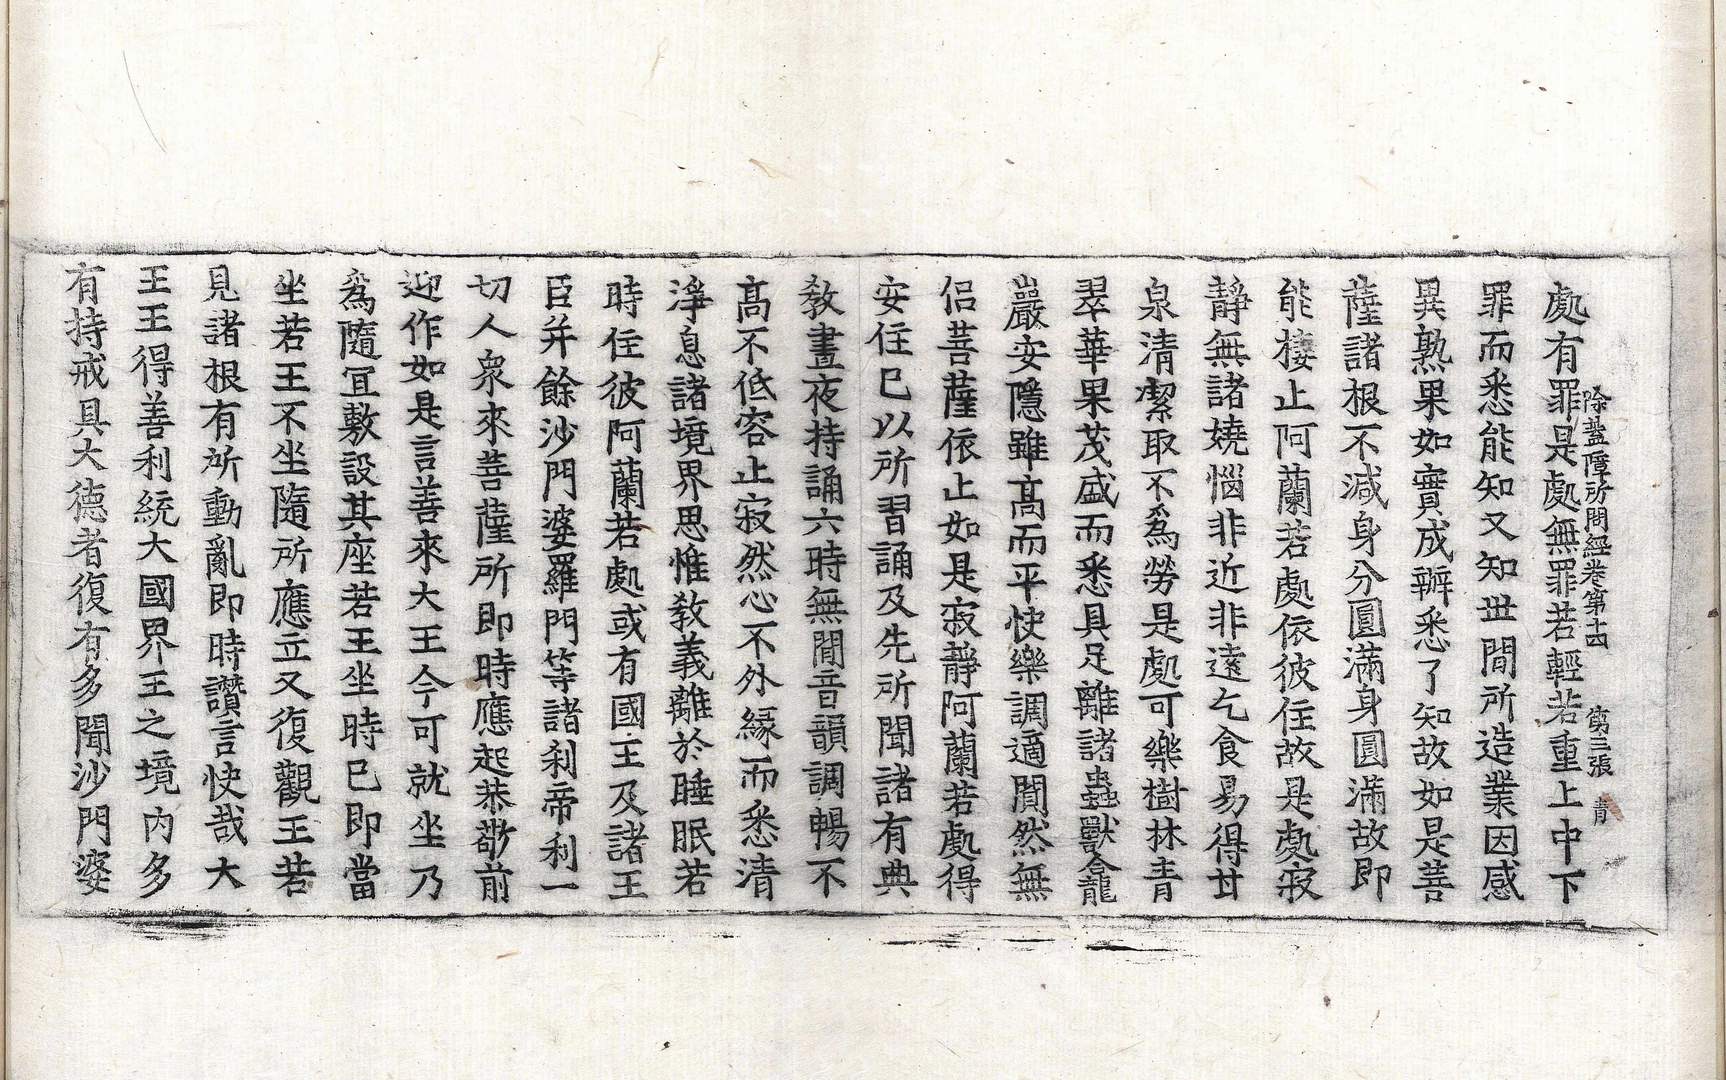 除蓋障所問經卷第十四 第三張 青
處有罪是處無罪若輕若重上中下
罪而悉能知又知世間所造業因感
異熟果如實成辦悉了知故如是菩
薩諸根不減身分圓滿身圓滿故即
能棲止阿蘭若處依彼住故是處寂
靜無諸嬈惱非近非遠乞食易得甘
泉清潔取不爲勞是處可樂樹林青
翠華果茂盛而悉具足離諸蟲獸龕龍
巖安隱雖高而平快樂調適閴然無
侣菩薩依止如是寂靜阿蘭若處得
安住已以所習誦及先所聞諸有典
教晝夜持誦六時無間音韻調暢不
高不低容止寂然心不外緣而悉清
淨息諸境界思惟教義離於睡眠若
時住彼阿蘭若處或有國王及諸王
臣并餘沙門婆羅門等諸刹帝利一
切人衆來菩薩所即時應起恭敬前
迎作如是言善來大王今可就坐乃
爲隨冝敷設其座若王坐時已即當
坐若王不坐隨所應立又復觀王若
見諸根有所動亂即時讃言快哉大
王王得善利統大國界王之境内多
有持戒具大德者復有多聞沙門婆